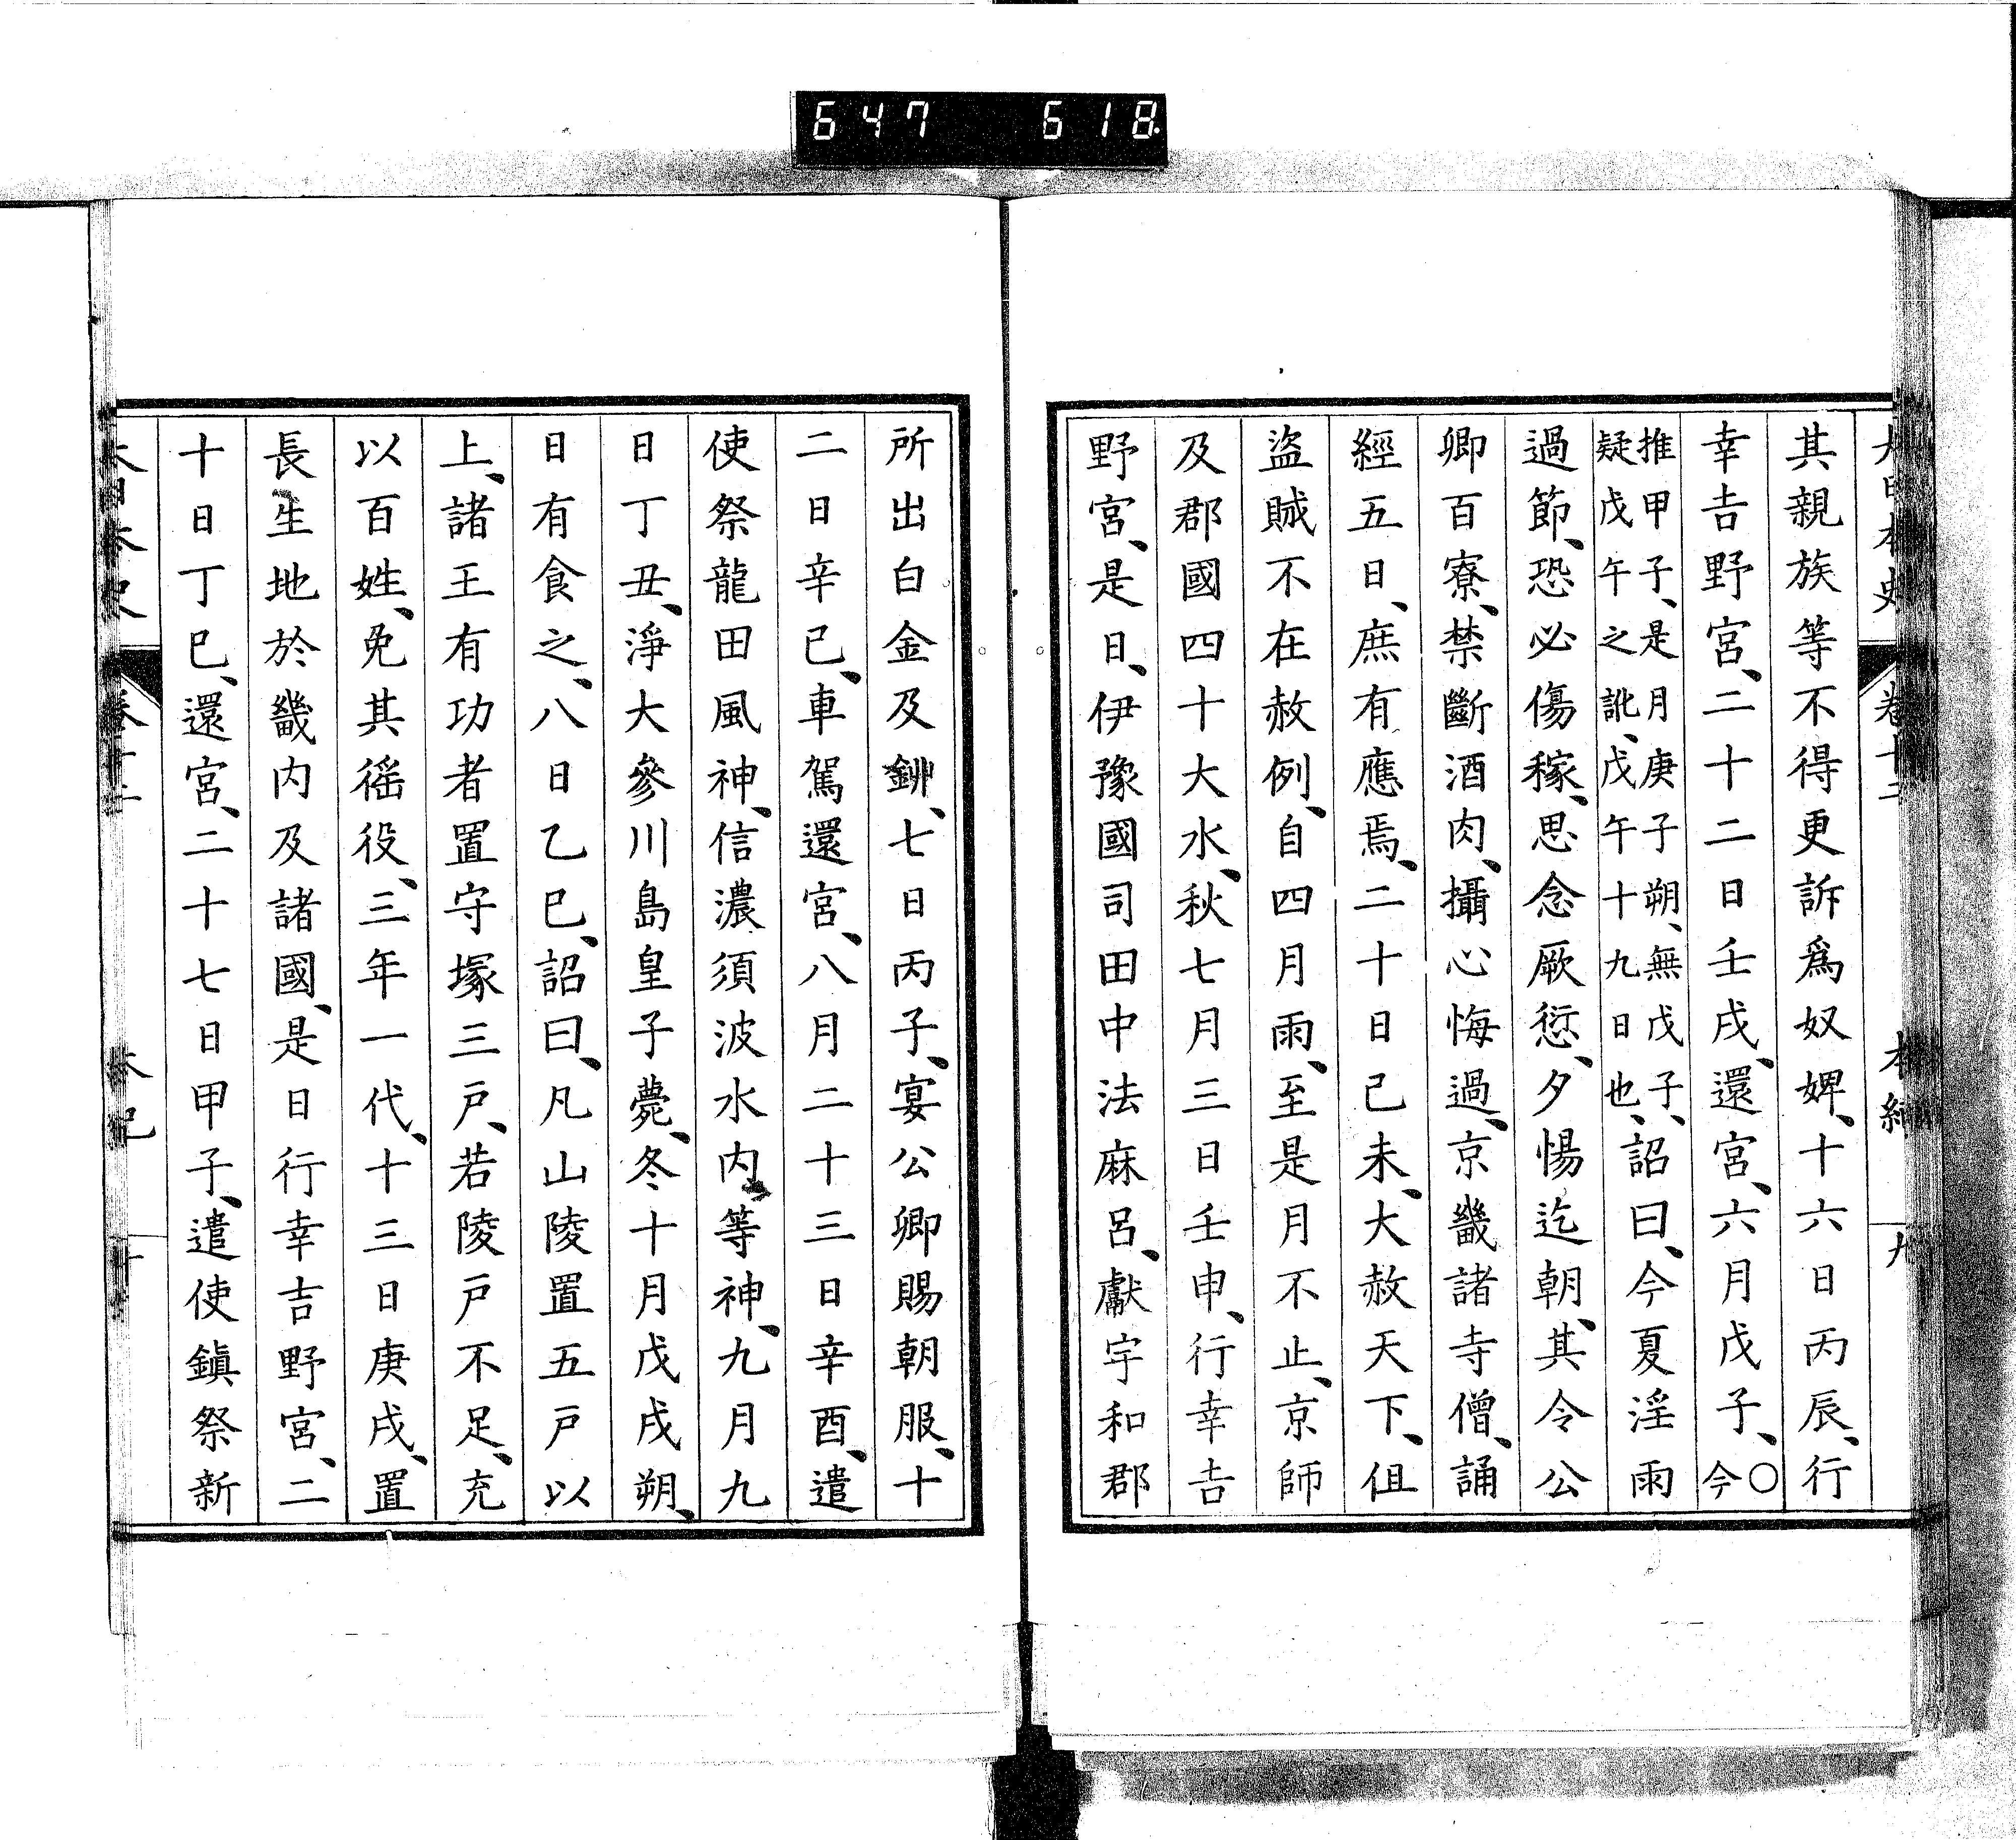 647 618
大日本史 卷十二 本紀 九
其親族等不得更訴爲奴婢、十六日丙辰、行
幸吉野宮、二十二日壬戌、還宮、六月戊子、○今
推甲子、是月庚子朔、無戊子、
疑戊午之訛、戊午十九日也、詔曰、今夏淫雨
過節、恐必傷稼、思念厥愆、夕惕迄朝、其令公
卿百寮、禁斷酒肉、攝心悔過、京畿諸寺僧、誦
經五日、庶有應焉、二十日己未、大赦天下、但
盜賊不在赦例、自四月雨、至是月不止、京師
及郡國四十大水、秋七月三日壬申、行幸吉
野宮、是日、伊豫國司田中法麻呂、獻宇和郡
所出白金及𨥥、七日丙子、宴公卿賜朝服、十
二日辛巳、車駕還宮、八月二十三日辛酉、遣
使祭龍田風神、信濃須波水內等神、九月九
日丁丑、淨大參川島皇子薨、冬十月戊戌朔、
日有食之、八日乙巳、詔曰、凡山陵置五戸以
上、諸王有功者置守塚三戸、若陵戸不足、充
以百姓、免其徭役、三年一代、十三日庚戌、置
長生地於畿内及諸國、是日行幸吉野宮、二
十日丁巳、還宮、二十七日甲子、遣使鎭祭新
大日本史 卷十二 本紀 十